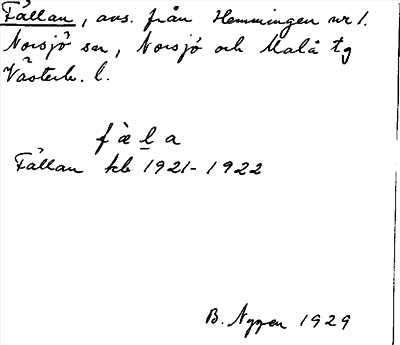 Fällan, avs. från Hemmingen nr 1.
Norsjö sn, Norsjö och Malå tg
Västerb. l.
f ὰ l a
Fällan kb 1921-1922
B. Nygren 1929